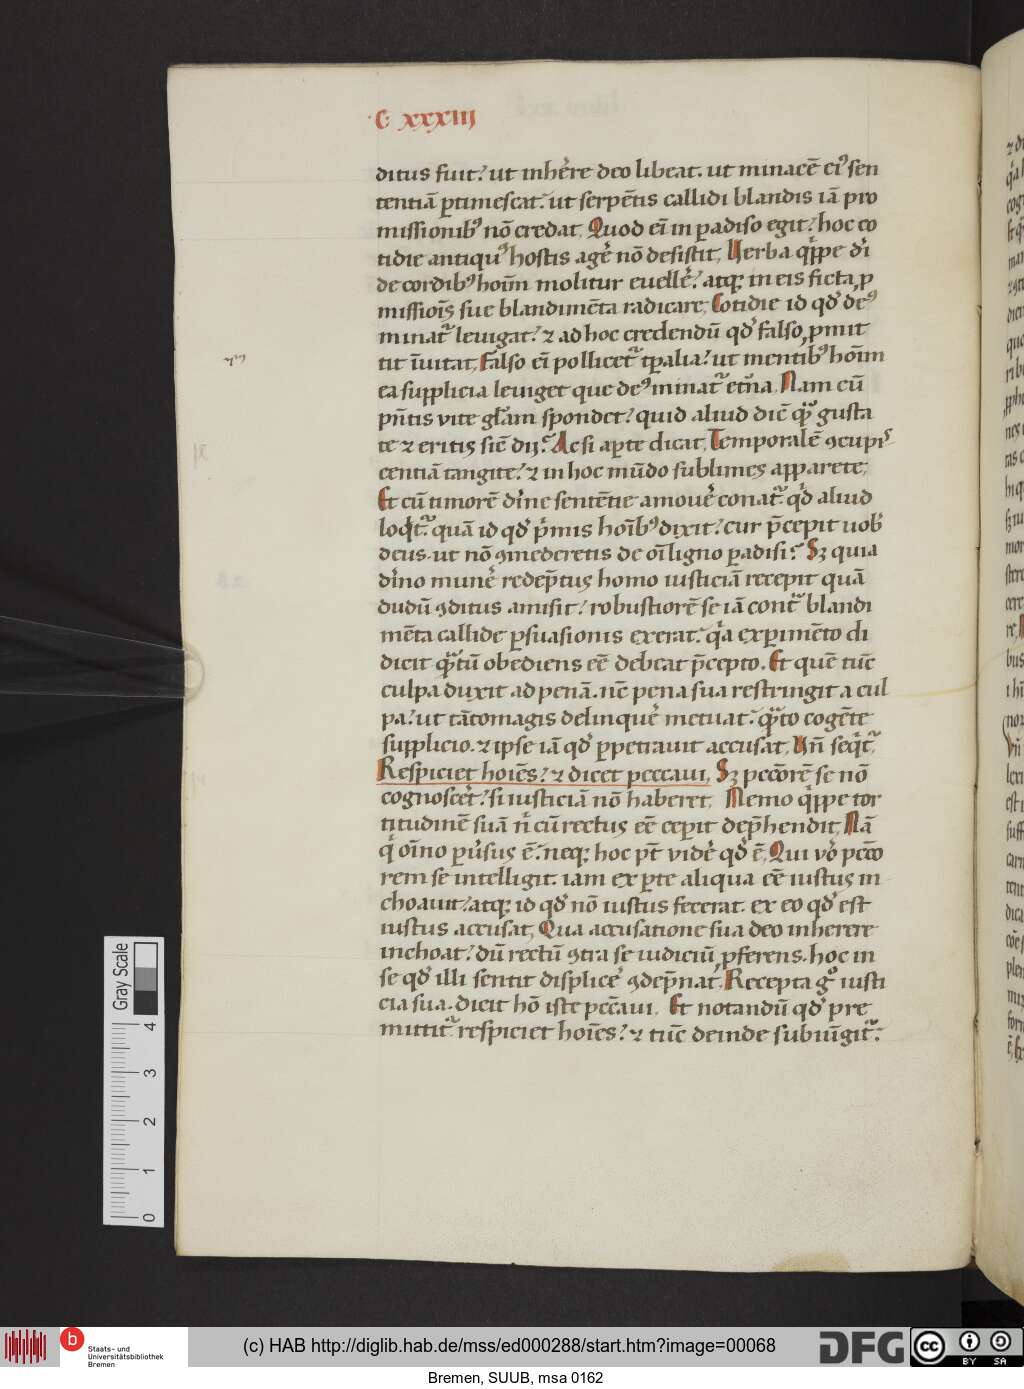 C xxxiii
ditus fuit? ut inhe͛re deo libeat. ut minacē eiꝰ sen
tentiā ꝑtimescat. ut serpētis callidi blandis iā pro
missionibꝰ nō credat. Quod eī in padiso egit? hoc co
tidie antiquꝰ hostis age͛ nō desistit. Verba qͥppe dī
de cordibꝰ hoīm molitur euelle͛? atqꝫ in eis ficta ꝓ
missioīs sue blandimēta radicare; Cotidie id qd̓ deꝰ
minat᷑ leuigat? ⁊ ad hoc credendū qd̓ falso ꝓmit
tit īuitat. Falso eī pollicet᷑ tꝑalia? ut mentibꝰ hoīm
ea supplicia leuiget que deꝰ minat᷑ etn̄a. Nam cū
pn̄tis vite glām spondet? quid aliud diē qͣꝫ gusta
te ⁊ eritis sic̄ dij? Ac si aꝑte dicat. Temporalē ꝯcupi
centiā tangite? ⁊ in hoc mūdo sublimes apparete;
Et cū timorē dīne sentētie amoue͛ conat᷑ qd̓ aliud
loqͥt᷑ quā id qd̓ pͥmis hoībꝰ dixit? cur p̄cepit uob̓
deus. ut nō ꝯmederetis de oī ligno padisi? Sꝫ quia
dīno mune͛ redēptus homo iusticiā recepit quā
dudū ꝯditus amisit? robustiorē se iā contͣ blandi
mēta callide ꝑsuasionis exerat. qͥa exꝑimēto di
dicit qͣꝫtū obediens eē debeat p̄cepto. Et quē tūc
culpa duxit ad penā. nc̄ pena sua restringit a cul
pa? ut tāto magis delinque͛ metuat. qͣꝫto cogēte
supplicio. ⁊ ipse iā qd̓ ꝑpetrauit accusat. Vn̄ seqͥt᷑.
Respiciet hoīes? ⁊ dicet peccaui. Sꝫ pecc̄orē se nō
cognosce͛t? si iusticiā nō haberet. Nemo qͥppe tor
titudinē suā n̄ cū rectus eē ceperit dep̄hendit. Nā
qͥ oīno ꝑu͛sus ē? neqꝫ hoc pt̄ vide͛ qd̓ ē. Qui vo͛ pecc̄o
rem se intelligit. iam ex ꝑte aliqua eē iustus in
choauit? atqꝫ id qd̓ nō iustus fecerat. ex eo qd̓ est
iustus accusat. Qua accusatione sua deo inherere
inchoat? dū rectū ꝯtra se iudiciū ꝓferens. hoc in
se qd̓ illi sentit displice͛ ꝯdep̄nat. Recepta gͦ iusti
cia sua. dicit hō iste pecc̄aui. Et notandū qd̓ pre
mittit᷑ respiciet hoīes? ⁊ tūc deinde subiūgit᷑.
Gray Scale
4
3
2
1
0
b
Staats- und
Universitätsbibliothek
Bremen
(c) HAB http://diglib.hab.de/mss/ed000288/start.htm?image=00068
DFG
cc
BY SA
Bremen, SUUB, msa 0162